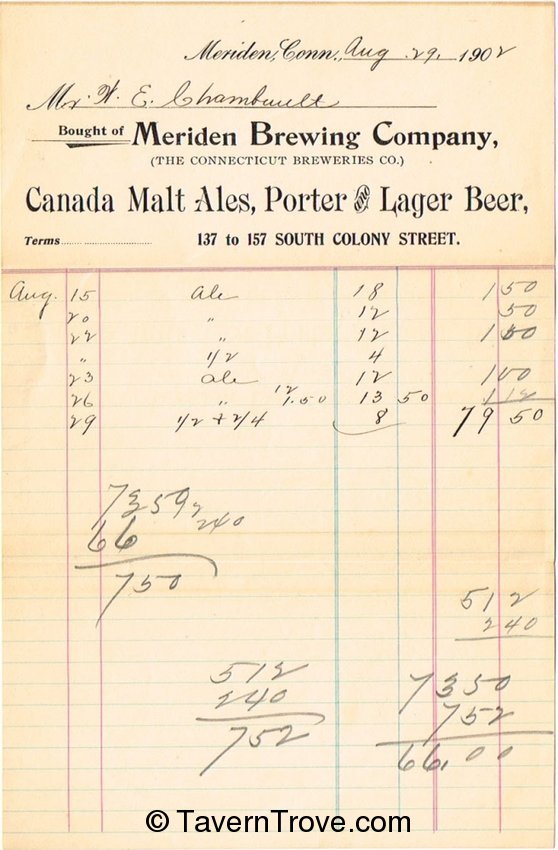 Meriden, Conn., Aug 29, 1902
Mr. W. E.
Bought of Meriden Brewing Company,
(THE CONNECTICUT BREWERIES CO.)
Canada Malt Ales, Porter AND Lager Beer,
Terms 137 to 157 SOUTH COLONY STREET.
Aug. 15 Ale 18 1 50
20 " 12 50
22 " 12 1 00
" 1/2 4
23 Ale 12 1 00
26 " 12 1.50 13 50 1 12
29 1/2 + 2/4 8 79 50
240
66
750
512
240
512
240
752
7350
752
66,00
© TavernTrove.com